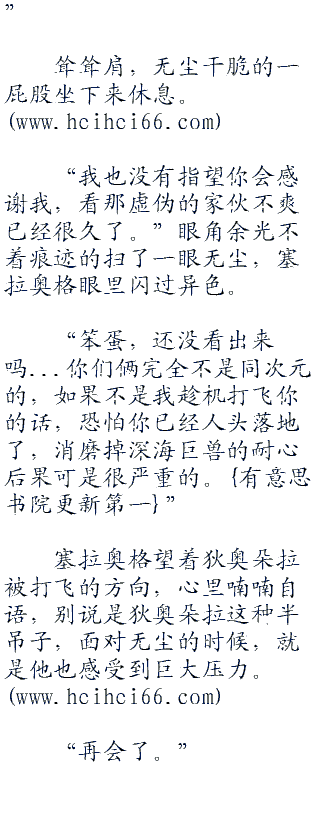 ”
耸耸肩，无尘干脆的一
屁股坐下来休息。
(www.hcihci66.com)
“我也没有指望你会感
谢我，看那虚伪的家伙不爽
已经很久了。”眼角余光不
着痕迹的扫了一眼无尘，塞
拉奥格眼里闪过异色。
“笨蛋，还没看出来
吗...你们俩完全不是同次元
的，如果不是我趁机打飞你
的话，恐怕你已经人头落地
了，消磨掉深海巨兽的耐心
后果可是很严重的。{有意思
书院更新第一}”
塞拉奥格望着狄奥朵拉
被打飞的方向，心里喃喃自
语，别说是狄奥朵拉这种半
吊子，面对无尘的时候，就
是他也感受到巨大压力。
(www.hcihci66.com)
“再会了。”